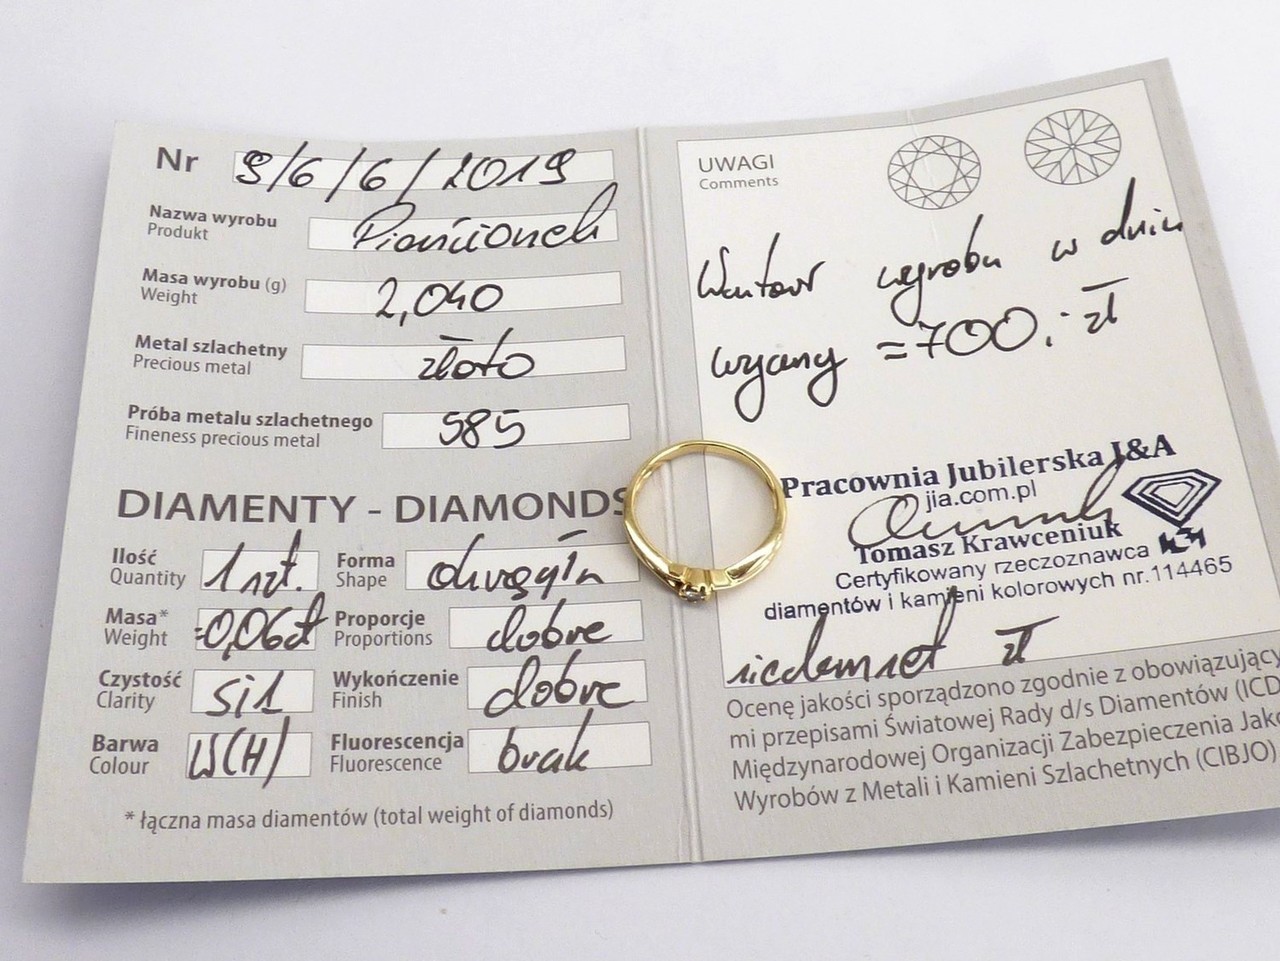 Nr 9/6/6/2019
Nazwa wyrobu
Produkt
Pierścionek
Masa wyrobu (g)
Weight
2,040
Metal szlachetny
Precious metal
złoto
Próba metalu szlachetnego
Fineness precious metal
585
DIAMENTY - DIAMONDS
Ilość
Quantity
1 szt.
Forma
Shape
okrągła
Masa*
Weight
=0,06ct
Proporcje
Proportions
dobre
Czystość
Clarity
Si1
Wykończenie
Finish
dobre
Barwa
Colour
W(H)
Fluorescencja
Fluorescence
brak
* łączna masa diamentów (total weight of diamonds)
UWAGI
Comments
Wartość wyrobu w dniu
wyceny =700,- zł
Pracownia Jubilerska J&A
jja.com.pl
Tomasz Krawceniuk
Certyfikowany rzeczoznawca
diamentów i kamieni kolorowych nr.114465
siedemset zł
Ocenę jakości sporządzono zgodnie z obowiązujący
mi przepisami Światowej Rady d/s Diamentów (ICD
Międzynarodowej Organizacji Zabezpieczenia Jako
Wyrobów z Metali i Kamieni Szlachetnych (CIBJO)